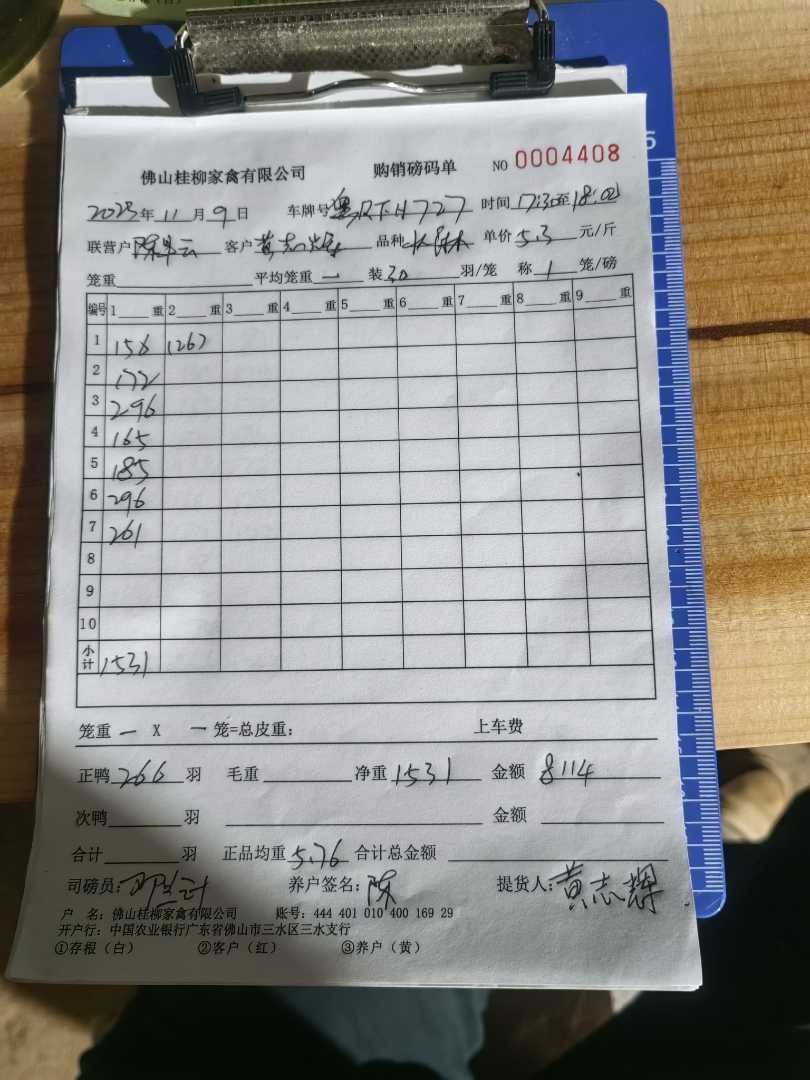 佛山桂柳家禽有限公司 购销磅码单 NO 0004408
2025年11月9日 车牌号 727 时间17:30至18:02
联营户 陈 云 客户 黄志辉 品种 单价5.3元/斤
笼重 平均笼重 一 装30羽/笼 称1笼/磅
编号 1 重 2 重 3 重 4 重 5 重 6 重 7 重 8 重 9 重
1 156 (26)
2 172
3 296
4 165
5 185
6 296
7 261
8
9
10
小计 1531
笼重 一 X 一 笼=总皮重： 上车费
正鸭 266 羽 毛重 净重 1531 金额 8114
次鸭 羽 金额
合计 羽 正品均重 5.76 合计总金额
司磅员： 养户签名：陈 提货人：黄志辉
户 名：佛山桂柳家禽有限公司 账号：444 401 010 400 169 29
开户行：中国农业银行广东省佛山市三水区三水支行
①存根（白） ②客户（红） ③养户（黄）